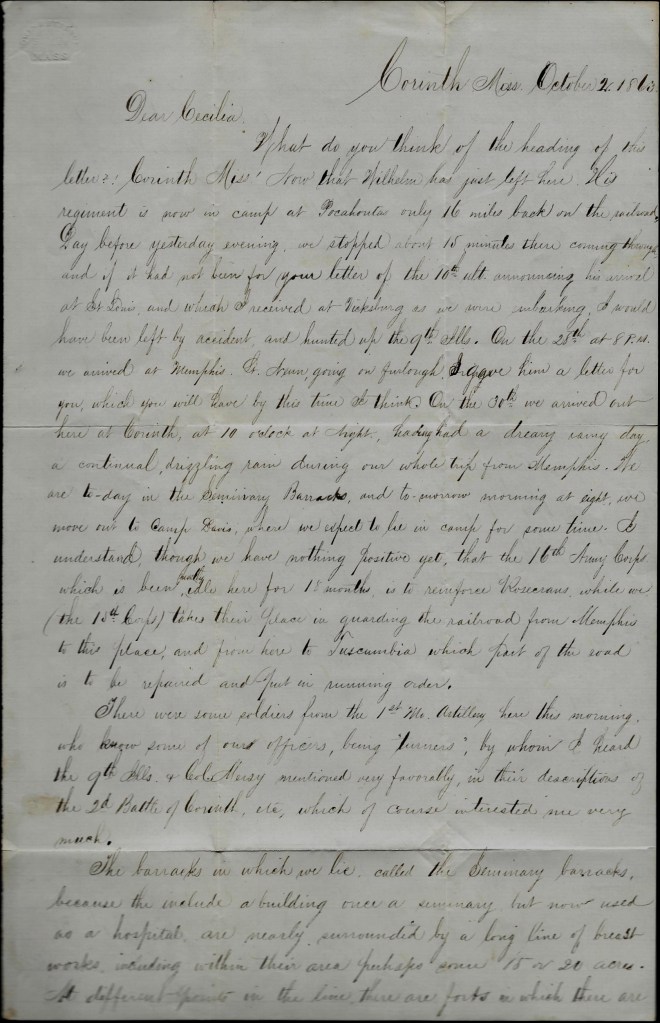 MASS
Corinth Miss. October 2, 1863.
Dear Cecilia.
What do you think of the heading of this
letter?! Corinth Miss! Now that Wilhelm has just left here. His
regiment is now in camp at Pocahontas only 16 miles back on the railroad.
Day before yesterday evening, we stopped about 15 minutes there coming through
and if it had not been for your letter of the 10th ult. announcing his arrival
at St Louis, and which I received at Vicksburg as we were embarking, I would
have been left by accident, and hunted up the 9th Ills. On the 28th at 8 P.M.
we arrived at Memphis. Lt. going on furlough, I gave him a letter for
you, which you will have by this time I think. On the 30th we arrived out
here at Corinth, at 10 oclock at night, having had a dreary rainy day
a continual, drizzling rain during our whole trip from Memphis. We
are to-day in the Seminary Barracks, and to-morrow morning at eight, we
move out to Camp Davis, where we expect to be in camp for some time. I
understand, though we have nothing positive yet, that the 16th Army Corps
which is been mostly idle here for 18 months, is to reinforce Rosecrans, while we
(the 15th Corps) takes their place in guarding the railroad from Memphis
to this place, and from here to Tuscumbia which part of the road
is to be repaired and put in running order.
There were some soldiers from the 1st Mo. Artillery here this morning,
who know some of our officers, being "turners", by whom I heard
the 9th Ills. & Col. Mersy mentioned very favorably, in their description of
the 2d Battle of Corinth, etc, which of course interested me very
much.
The barracks in which we lie, called the Seminary barracks,
because the include a building once a seminary, but now used
as a hospital, are nearly surrounded by a long line of breast
works, including within their area perhaps some 15 or 20 acres.
At different points in the line, there are forts in which there are